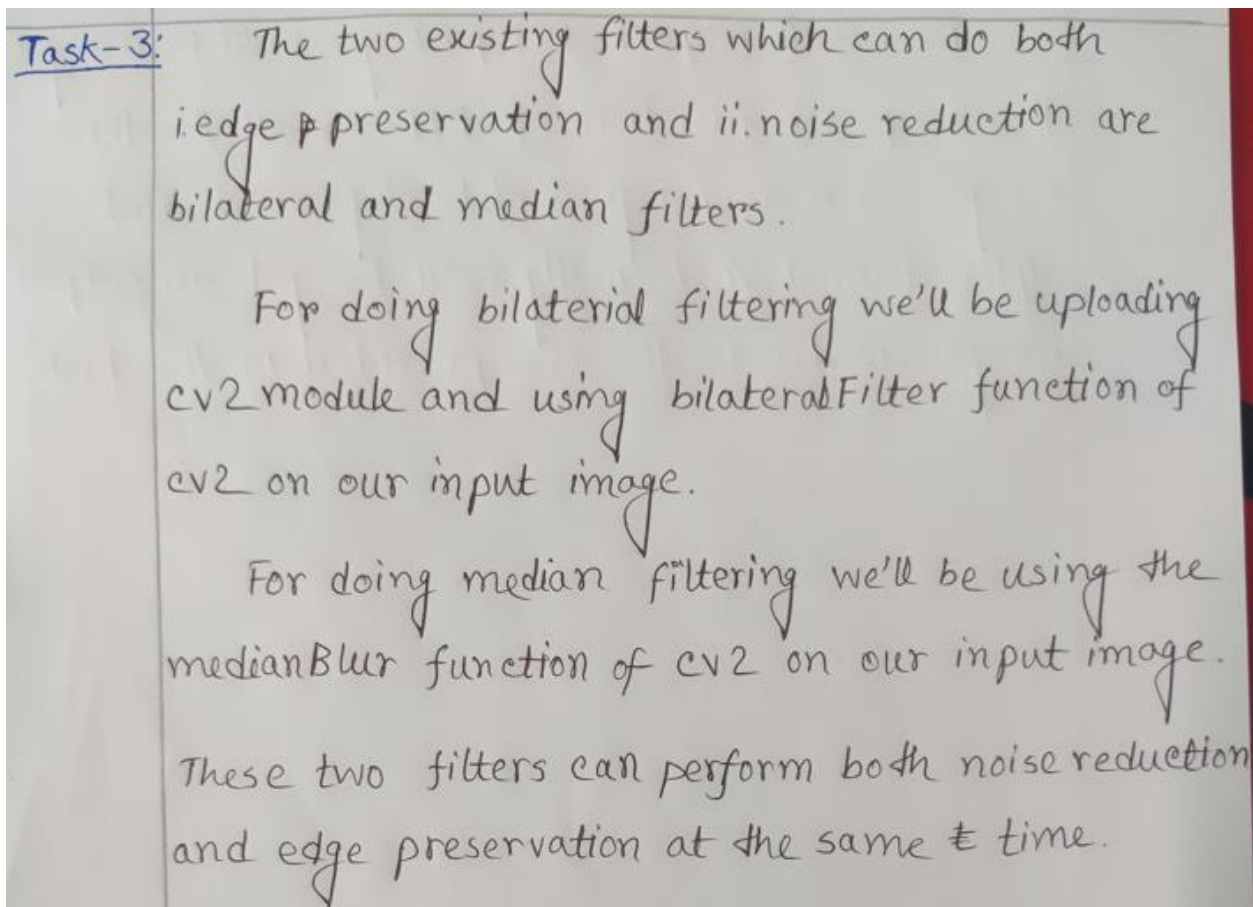 Task-3: The two existing filters which can do both
i.edge preservation and ii.noise reduction are
bilateral and median filters.
For doing bilaterial filtering we'll be uploading
cv2 module and using bilateralFilter function of
cv2 on our input image.
For doing median filtering we'll be using the
medianBlur function of cv2 on our input image.
These two filters can perform both noise reduction
and edge preservation at the same time.